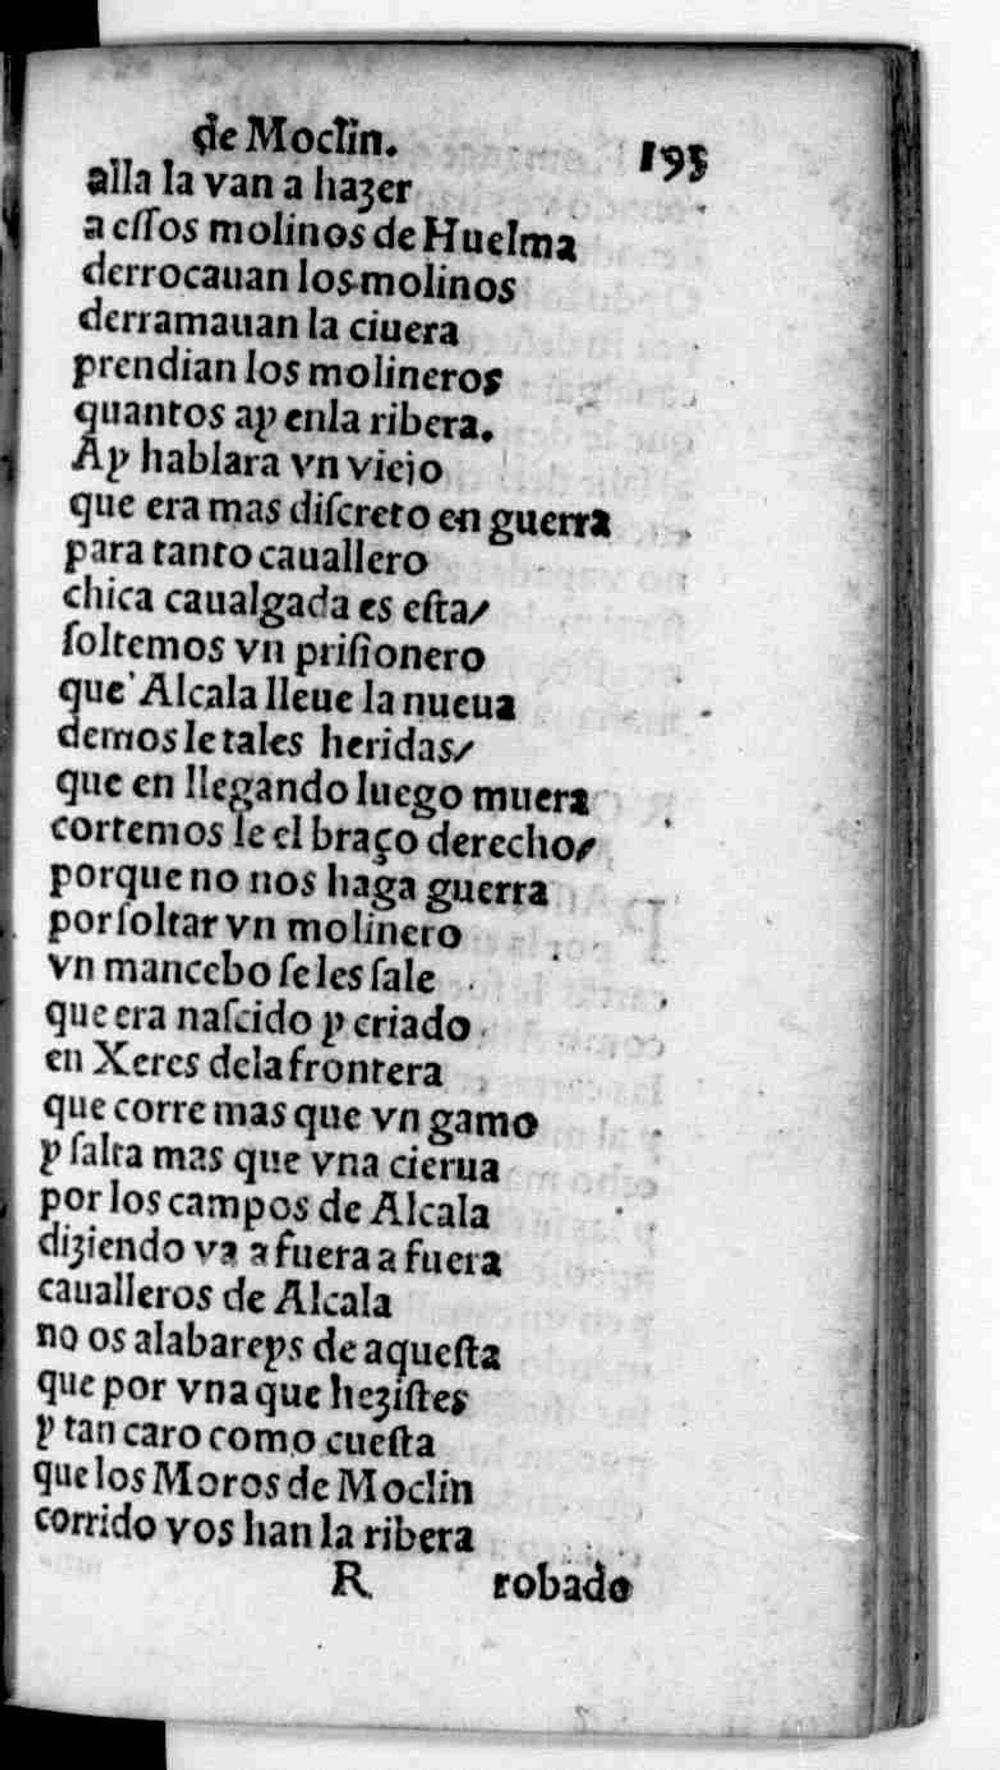 de Moclin. 195
alla la van a hazer
a essos molinos de Huelma
derrocauan los molinos
derramauan la ciuera
prendian los molineros
quantos ay enla ribera.
Ay hablara vn viejo
que era mas discreto en guerra
para tanto cauallero
chica caualgada es esta/
soltemos vn prisionero
que Alcala lleue la nueua
demos le tales heridas/
que en llegando luego muera
cortemos le el braço derecho/
porque no nos haga guerra
por soltar vn molinero
vn mancebo se les sale
que era nascido y criado
en Xeres dela frontera
que corre mas que vn gamo
y salta mas que vna cierua
por los campos de Alcala
diziendo va a fuera a fuera
caualleros de Alcala
no os alabareys de aquesta
que por vna que hezistes
y tan caro como cuesta
que los Moros de Moclin
corrido vos han la ribera
R robado